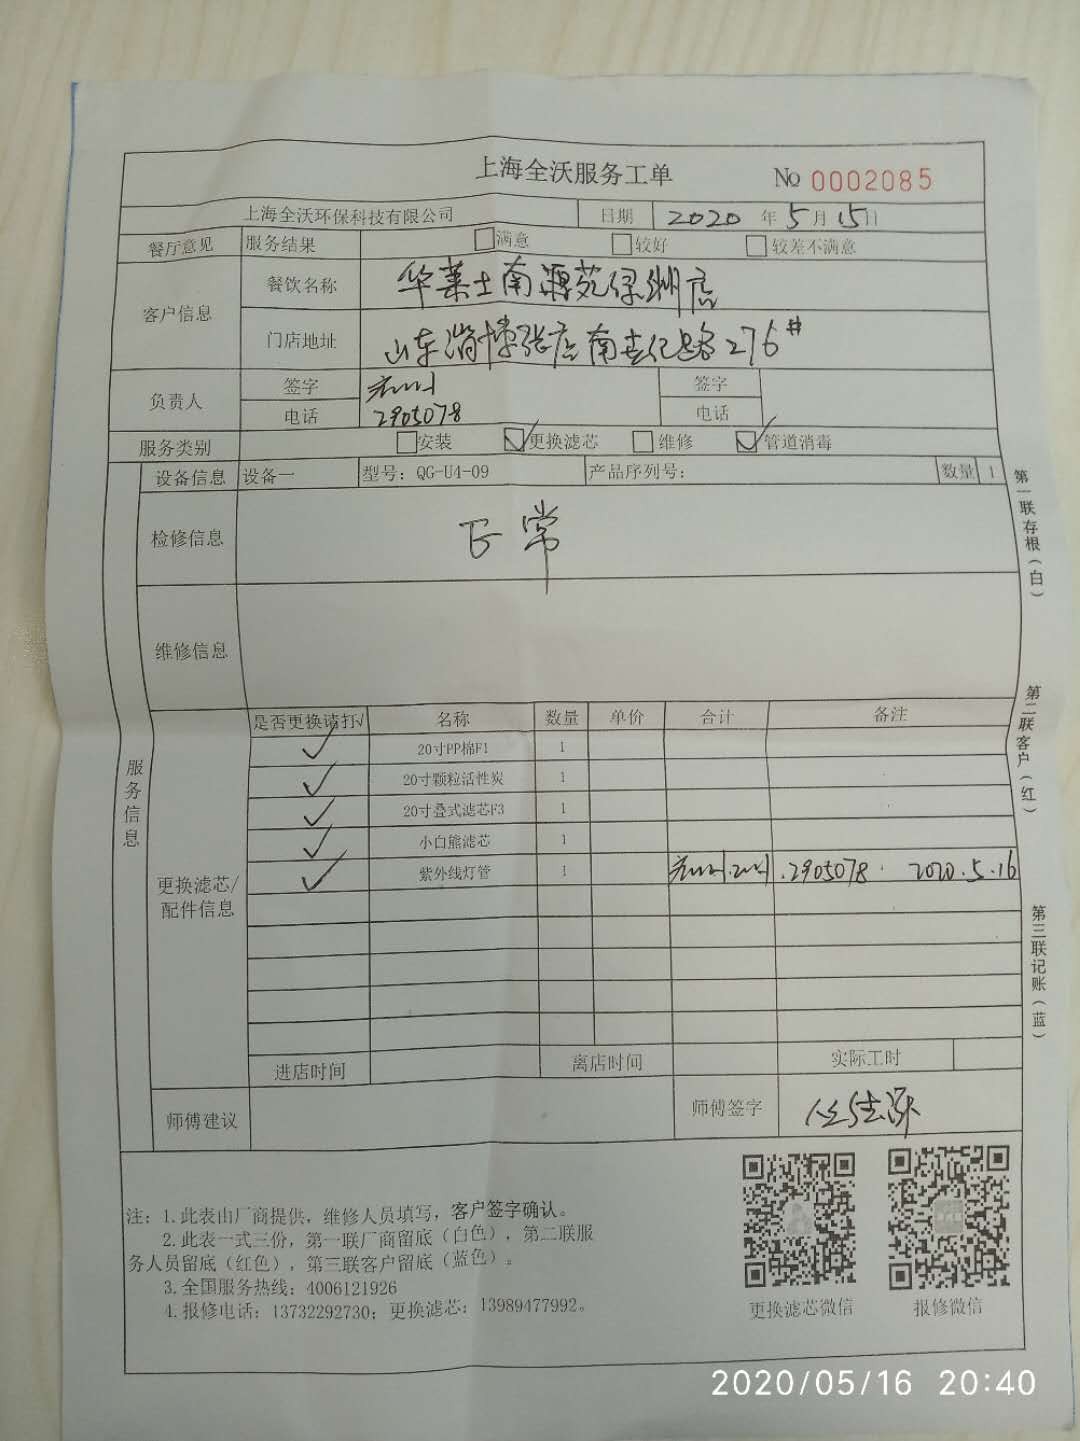 上海全沃服务工单 No 0002085
上海全沃环保科技有限公司 日期 2020 年 5 月 15 日
餐厅意见 服务结果 满意 较好 较差不满意
客户信息 餐饮名称 华莱士南源苑绿洲店
门店地址 山东淄博张店南世纪路276#
负责人 签字 签字
电话 2905078 电话
服务类别 安装 更换滤芯 维修 管道消毒
设备信息 设备一 型号：QG-U4-09 产品序列号： 数量 1
检修信息 正常
维修信息
服务信息
更换滤芯/配件信息
是否更换请打√ 名称 数量 单价 合计 备注
√ 20寸PP棉F1 1
√ 20寸颗粒活性炭 1
√ 20寸叠式滤芯F3 1
√ 小白熊滤芯 1
√ 紫外线灯管 1 2905078. 2020.5.16
进店时间 离店时间 实际工时
师傅建议 师傅签字
第一联存根（白）
第二联客户（红）
第三联记账（蓝）
注：1.此表由厂商提供，维修人员填写，客户签字确认。
2.此表一式三份，第一联厂商留底（白色），第二联服
务人员留底（红色），第三联客户留底（蓝色）。
3.全国服务热线：4006121926
4.报修电话：13732292730；更换滤芯：13989477992。
更换滤芯微信 报修微信
2020/05/16 20:40